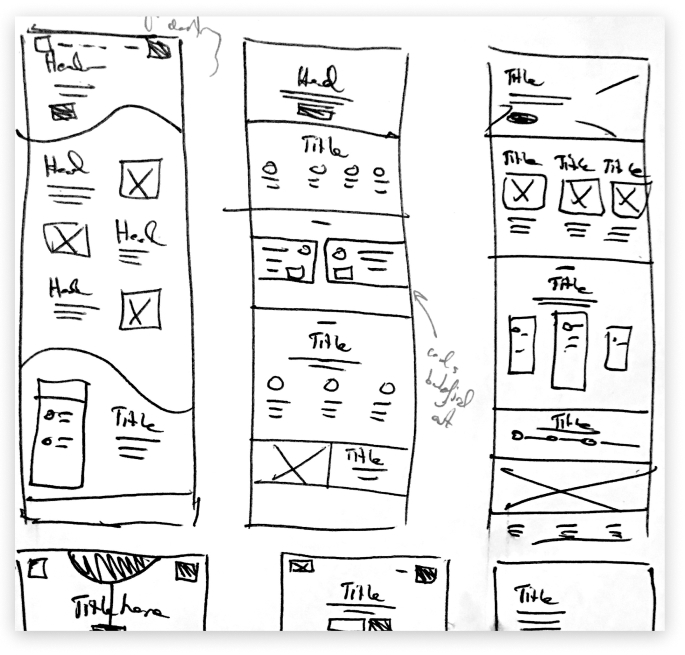 Header
Head
Head
Head
Title
Head
Title
Title
Title
Title
Title Title Title
Title
Title
Title here
Title
Title